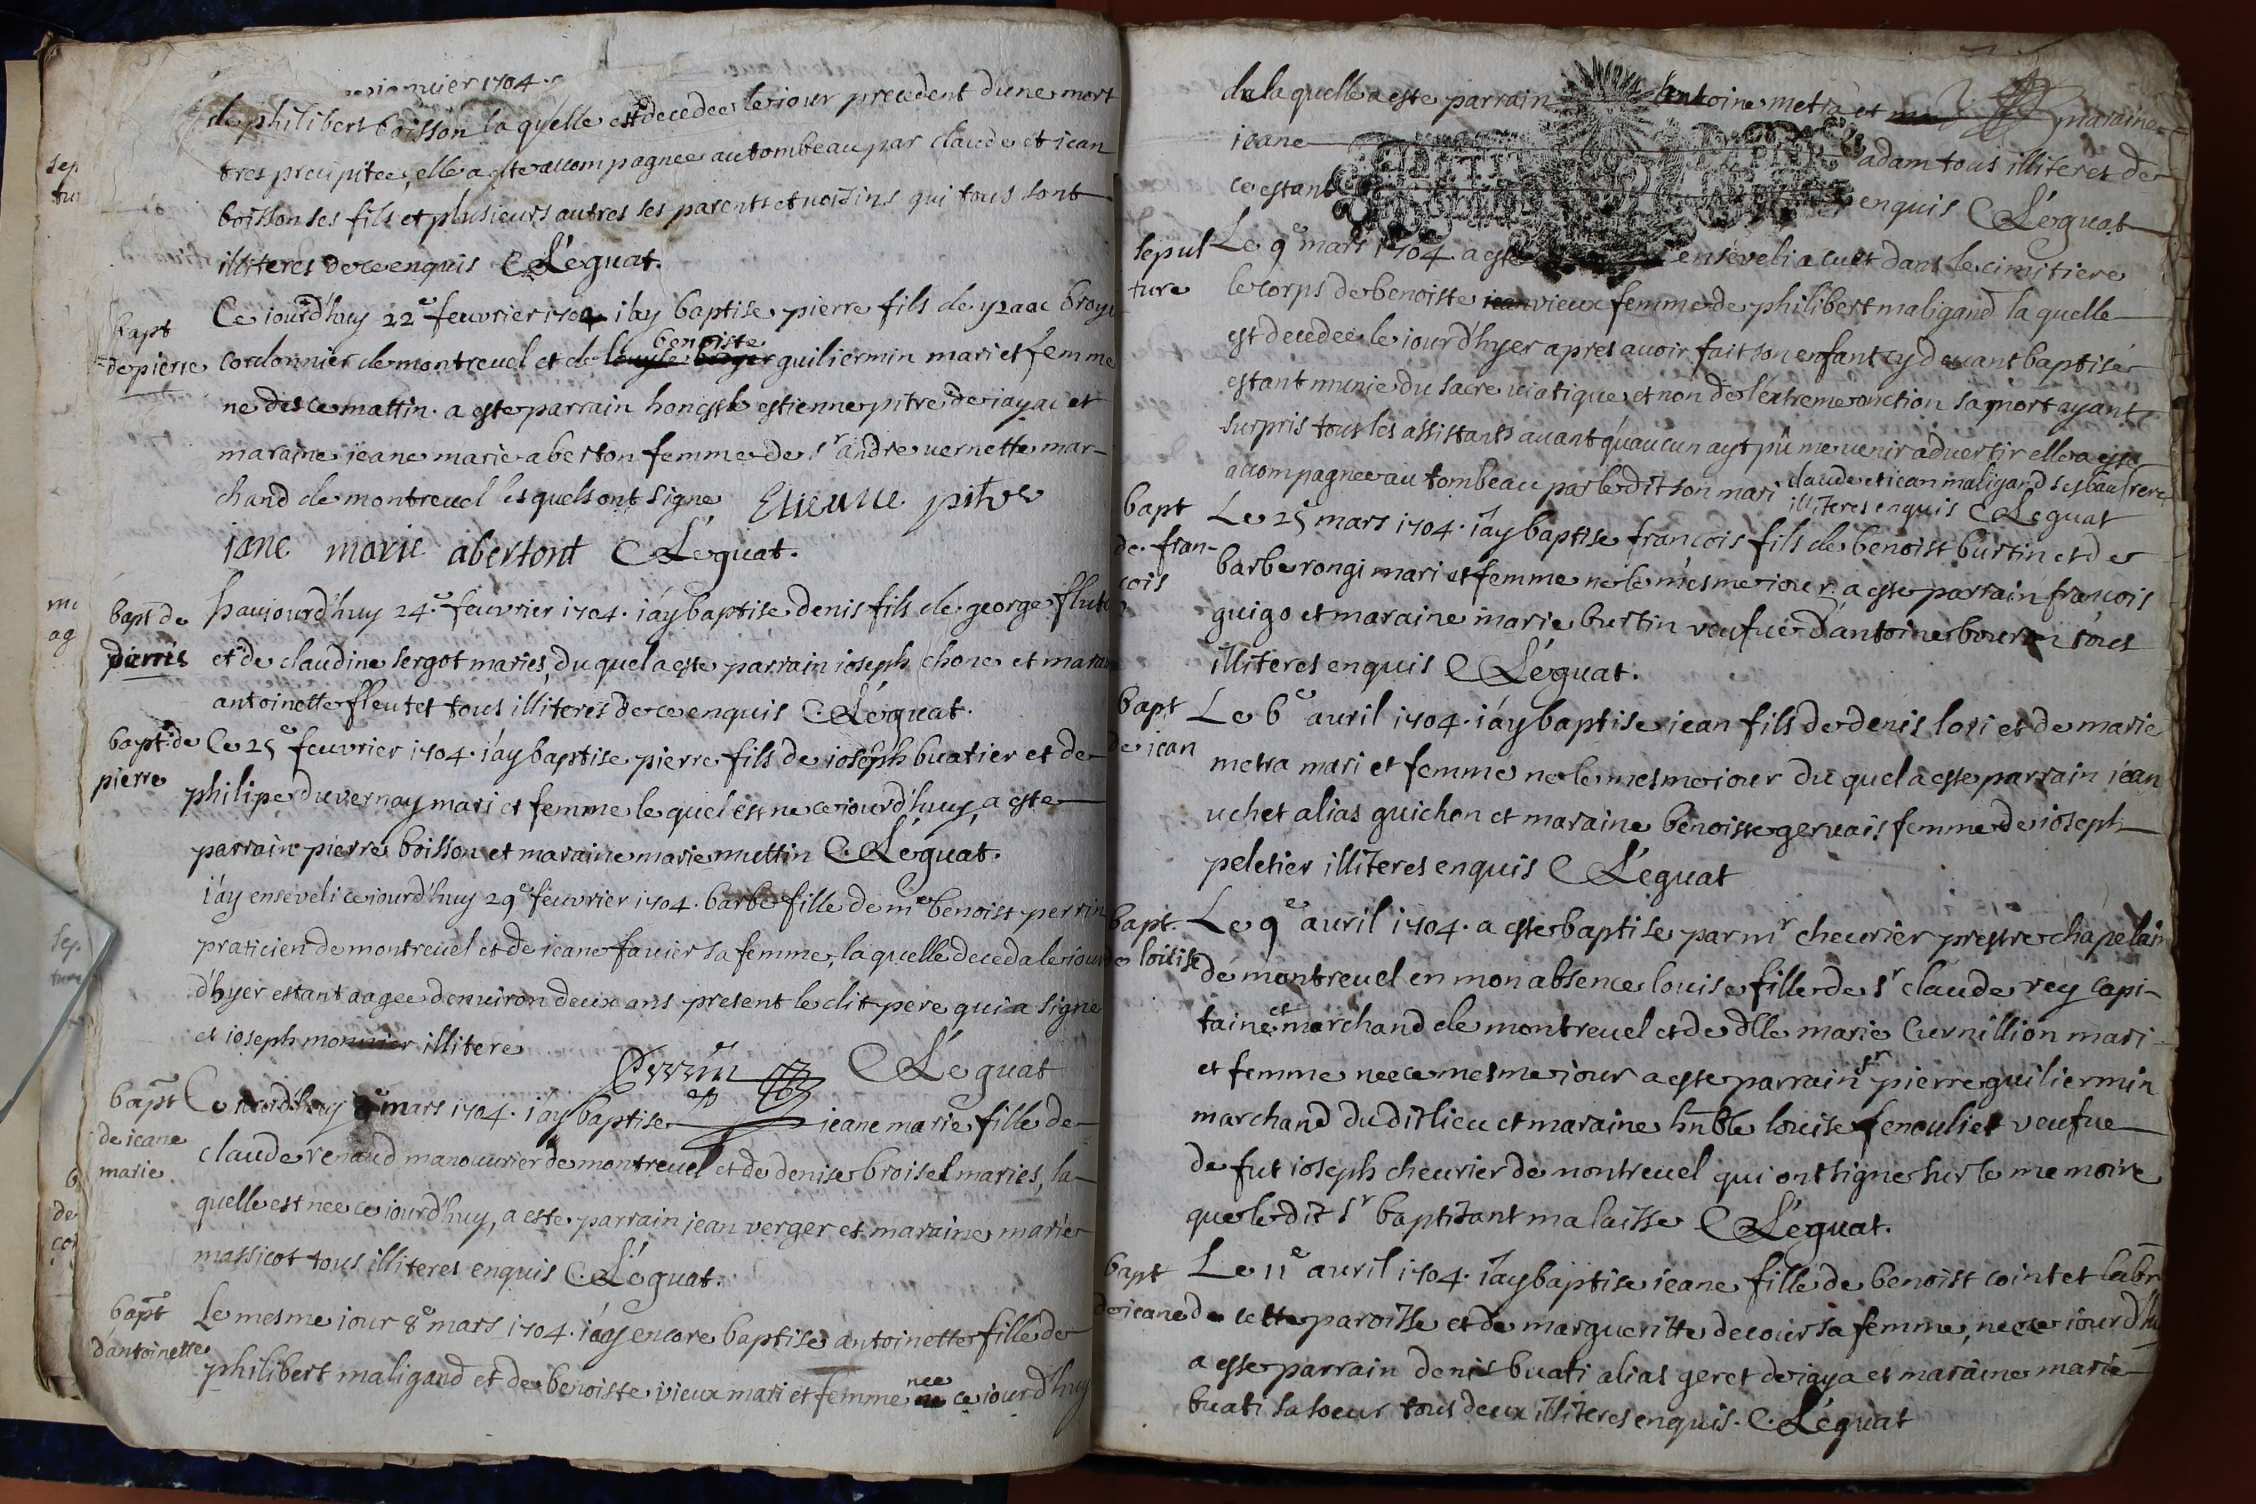 ianvier 1704.
de philibert boisson laquelle est decedee le iour precedent dune mort
tres precipitee, elle a este accompagnee au tombeau par claude et iean
boisson ses fils et plusieurs autres ses parents et voisins qui tous sont
illiteres de ce enquis C Léguat.
bapt
de pierre
Ce iourd'huy 22e feuvrier 1704 i'ay baptise pierre fils de yzaac
cordonnier de montrevel et de benoiste guiliermin mari et femme
ne des ce mattin. a este parrain honeste estienne pitre de iayac et
maraine ieane marie aberton femme de sr andre vernette mar-
chand de montrevel lesquels ont signe Etienne pitre
iane marie abertont C Léguat.
bapt de
denis
haujourd'huy 24.e feuvrier 1704. i'ay baptise denis fils de george
et de claudine sergot maries, du quel a este parrain ioseph chone et
antoinette fleutet tous illiteres de ce enquis C. Léguat.
bapt de
pierre
Ce 25e feuvrier 1704. i'ay baptise pierre fils de ioseph buatier et de
philipe duvernay mari et femme lequel est ne ce iourd'huy, a este
parrain pierre boisson et maraine marie muttin C. Léguat.
i'ay enseveli ce iourd'huy 29e feuvrier 1704. barbe fille de me benoist perrin
praticien de montrevel et de ieane favier sa femme, laquelle deceda le iour
d'hyer estant aagee denviron deux ans present ledit pere qui a signe
et ioseph monnier illitere
Perrin C Léguat
bapt
de ieane
marie
Ce iourd'huy 8e mars 1704. i'ay baptise ieane marie fille de
claude renaud manouvrier de montrevel et de denise broisel maries, la-
quelle est nee ce iourd'huy, a este parrain jean verger et maraine marie
massicot tous illiteres enquis C. Léguat.
bapt
d'antoinette
Le mesme iour 8e mars 1704. i'ay encore baptise antoinette fille de
philibert maligand et de benoiste vieux mari et femme nee ce iourd'huy
de laquelle a este parrain antoine metra et maraine
ieane adam tous illiteres de
ce estant enquis C Léguat
sepul
ture
Le 9e mars 1704. a este enseveli a cuet dans le cimitiere
le corps de benoiste vieux femme de philibert maligand laquelle
est decedee le iourd'hyer apres avoir fait son enfant cy devant baptisé
estant munie du sacre viatique, et non de l'extreme onction sa mort ayant
surpris tous les assistants avant qu'aucun ayt pû me venir advertir elle a este
accompagnee au tombeau par ledit son mari claude et iean maligand ses beaufrere
illiteres enquis C Léguat
bapt
de fran-
cois
Le 25 mars 1704. i'ay baptise francois fils de benoist burtin et de
barbe rongi mari et femme ne le mesme iour. a este parrain francois
guigo et maraine marie burtin veufue d'antoine tous
illiteres enquis C Léguat.
bapt
de iean
Le 6e avril 1704. i'ay baptise iean fils de denis lori et de marie
metra mari et femme ne le mesme iour du quel a este parrain iean
uchet alias guichon et maraine benoiste gervais femme de ioseph
peletier illiteres enquis C Léguat
bapt.
de loüise
Le 9e avril 1704. a este baptise par mr chevrier prestre chapelain
de montrevel en mon absence louise fille de sr claude rey capi-
taine et marchand de montrevel et de dlle marie Cuvnillion mari
et femme nee ce mesme iour a este parrain sr pierre guiliermin
marchand dudit lieu et maraine hnble louise fenouliet veufue
de fut ioseph chevrier de montrevel qui ont signe sur le memoire
que ledit sr baptizant ma laisse C Léguat.
bapt
de ieane
Le 11e avril 1704. i'ay baptise ieane fille de benoist cointet labr
de cette paroisse et de margueritte decour sa femme, nee ce iourd'hu
a este parrain denis buati alias geret de iaya et maraine marie
buati sa soeur tous deux illiteres enquis. C. Léguat